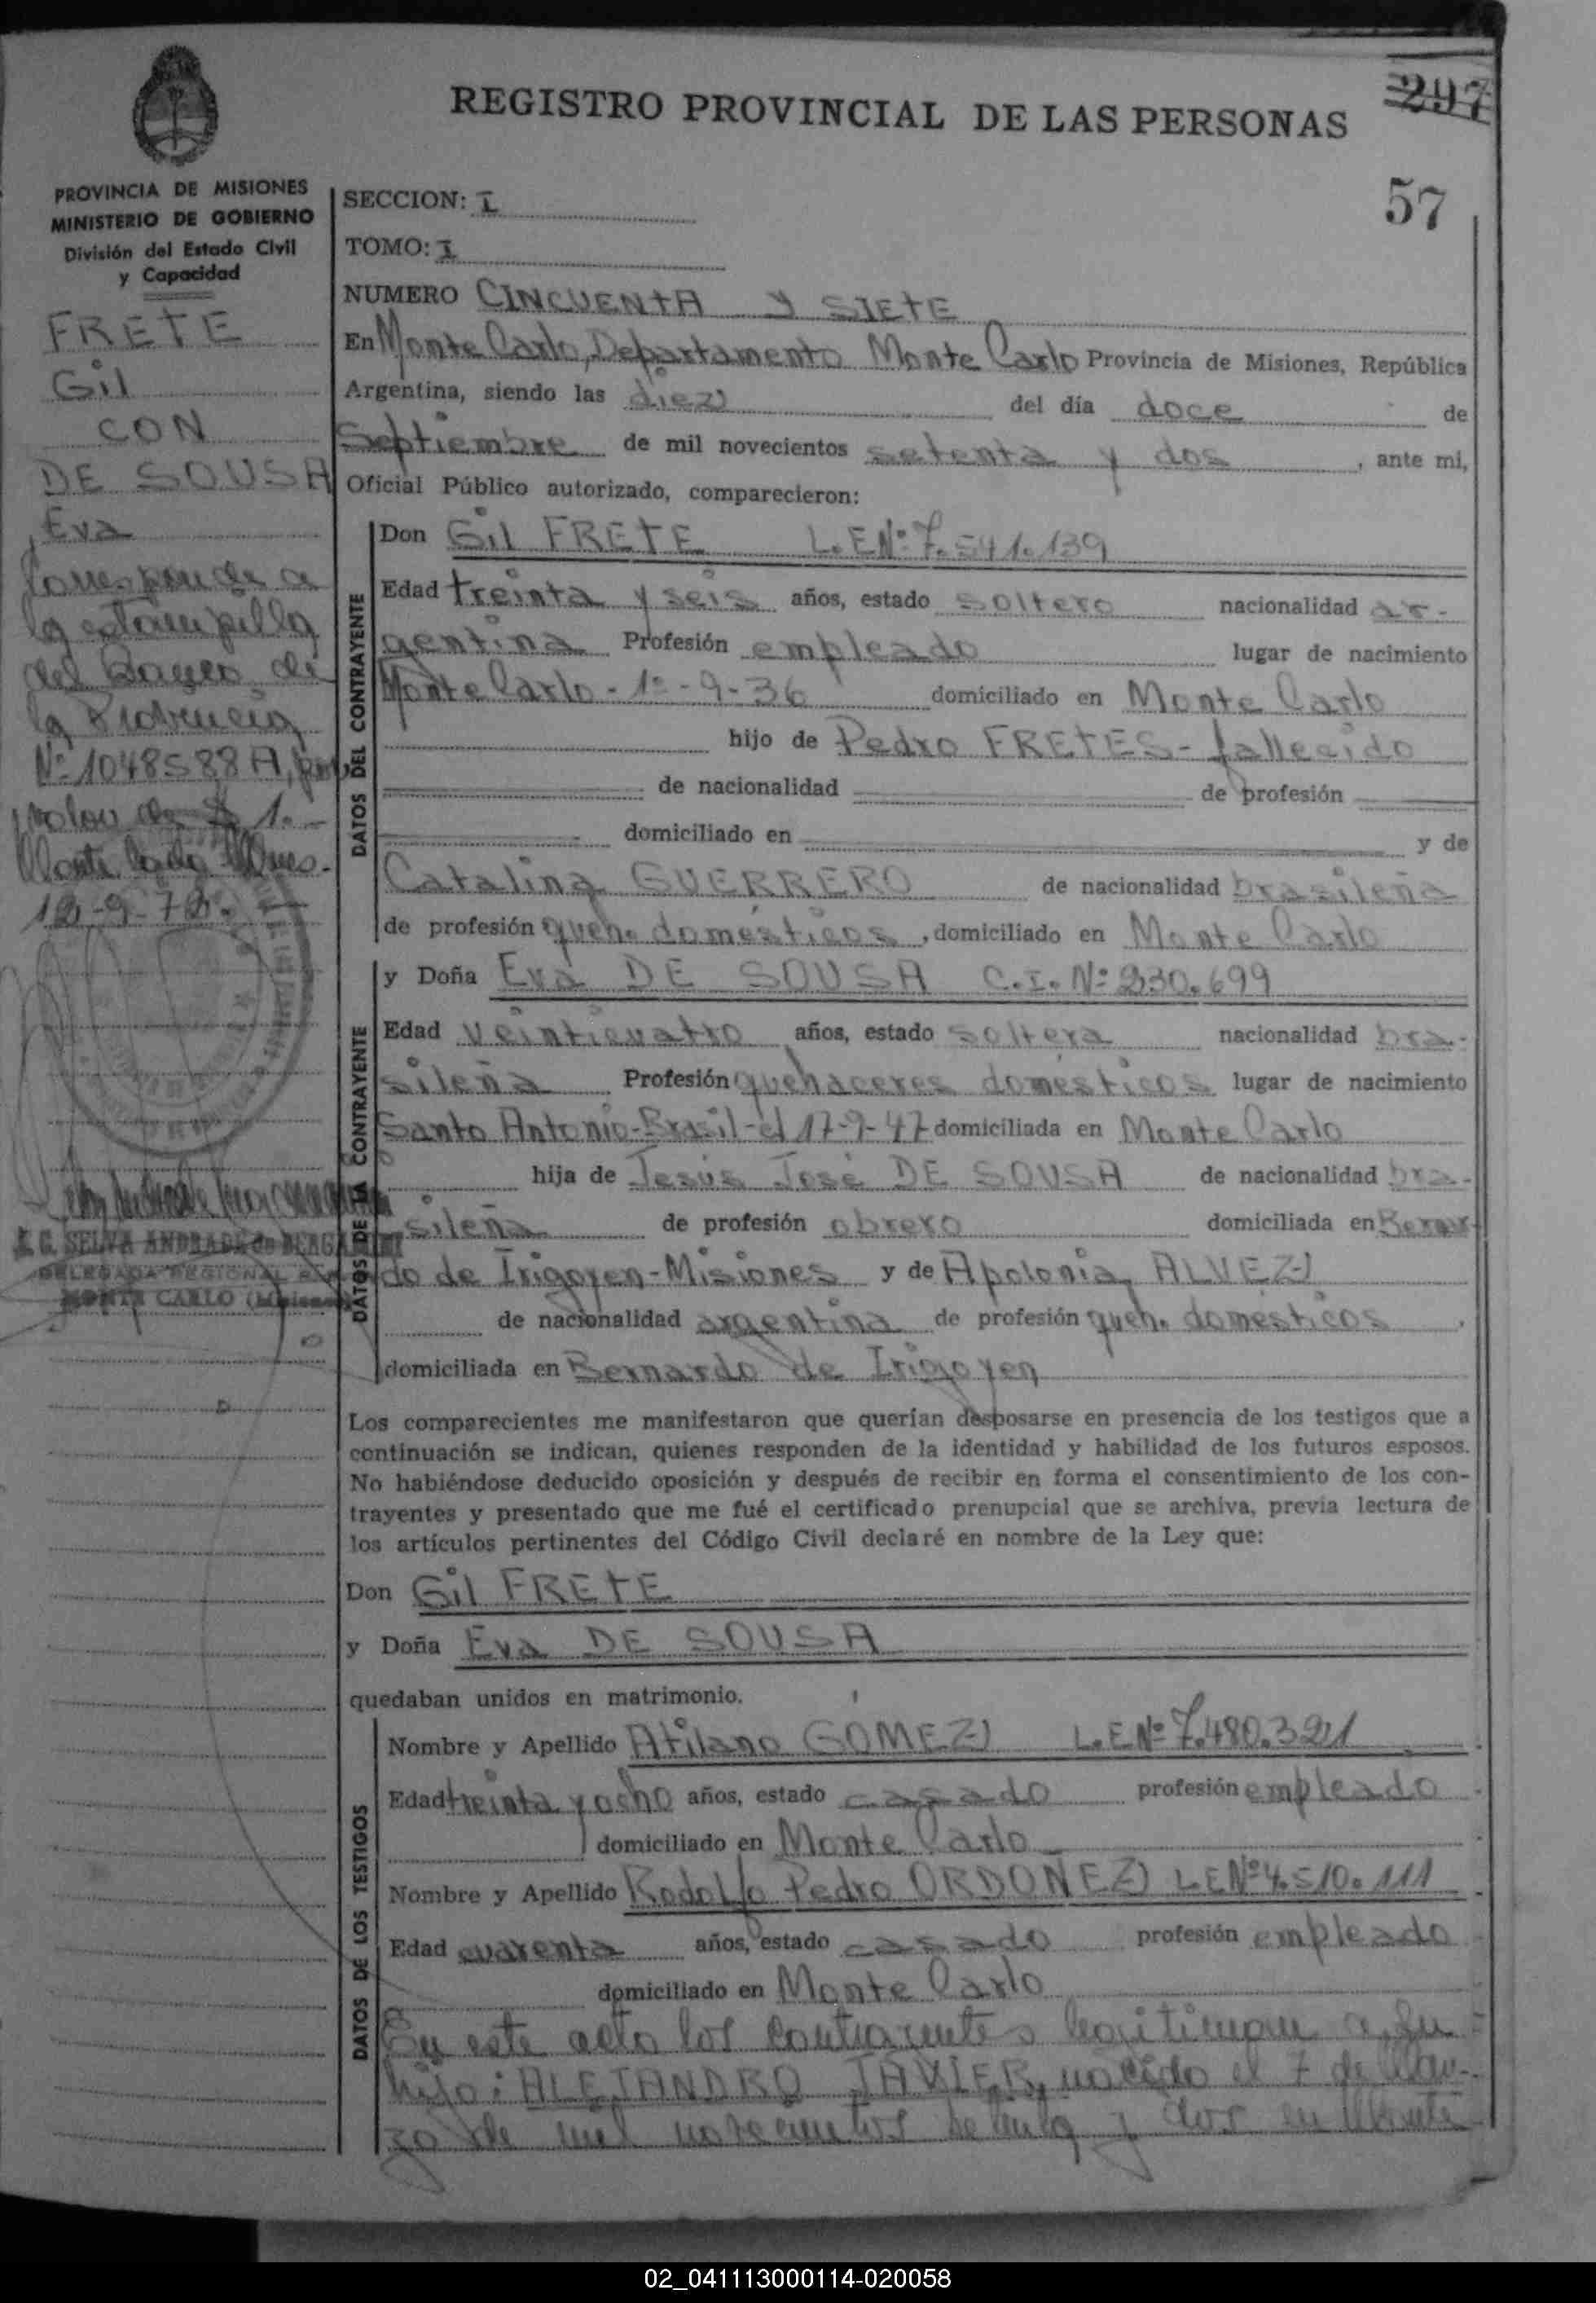 REGISTRO PROVINCIAL DE LAS PERSONAS
297
57
PROVINCIA DE MISIONES
MINISTERIO DE GOBIERNO
División del Estado Civil
y Capacidad
FRETE
Gil
CON
DE SOUSA
Eva
Corresponde a
la estampilla
del Banco de
la Provincia
Nº 1048588 A, por
valor de $ 1.-
Monte Carlo Mnes.
12-9-72.
S. G. SELVA ANDRADE de BERGAMINI
DELEGADA REGIONAL
MONTE CARLO (Misiones)
SECCION: I
TOMO: I
NUMERO CINCUENTA Y SIETE
En Monte Carlo, Departamento Monte Carlo Provincia de Misiones, República
Argentina, siendo las diez del día doce de
Septiembre de mil novecientos setenta y dos, ante mi,
Oficial Público autorizado, comparecieron:
DATOS DEL CONTRAYENTE
Don Gil FRETE L.E.Nº 7.541.139
Edad treinta y seis años, estado soltero nacionalidad ar-
gentina Profesión empleado lugar de nacimiento
Monte Carlo - 1º-9-36 domiciliado en Monte Carlo
hijo de Pedro FRETES - fallecido
de nacionalidad de profesión
domiciliado en y de
Catalina GUERRERO de nacionalidad brasileña
de profesión queh. domésticos, domiciliado en Monte Carlo
DATOS DE LA CONTRAYENTE
y Doña Eva DE SOUSA C.I. Nº 230.699
Edad veinticuatro años, estado soltera nacionalidad bra-
sileña Profesión quehaceres domésticos lugar de nacimiento
Santo Antonio-Brasil-el 17-9-47 domiciliada en Monte Carlo
hija de Jesús José DE SOUSA de nacionalidad bra-
sileña de profesión obrero domiciliada en Bernar-
do de Irigoyen-Misiones y de Apolonia ALVEZ
de nacionalidad argentina de profesión queh. domésticos
domiciliada en Bernardo de Irigoyen
Los comparecientes me manifestaron que querían desposarse en presencia de los testigos que a
continuación se indican, quienes responden de la identidad y habilidad de los futuros esposos.
No habiéndose deducido oposición y después de recibir en forma el consentimiento de los con-
trayentes y presentado que me fué el certificado prenupcial que se archiva, previa lectura de
los artículos pertinentes del Código Civil declaré en nombre de la Ley que:
Don Gil FRETE
y Doña Eva DE SOUSA
quedaban unidos en matrimonio.
DATOS DE LOS TESTIGOS
Nombre y Apellido Atilano GOMEZ L.E.Nº 7.480.321
Edad treinta y ocho años, estado casado profesión empleado
domiciliado en Monte Carlo
Nombre y Apellido Rodolfo Pedro ORDOÑEZ L.E.Nº 4.510.111
Edad cuarenta años, estado casado profesión empleado
domiciliado en Monte Carlo
En este acto los contrayentes legitiman a su
hijo: ALEJANDRO JAVIER, nacido el 7 de Mar-
zo de mil novecientos setenta y dos en Monte
02_041113000114-020058